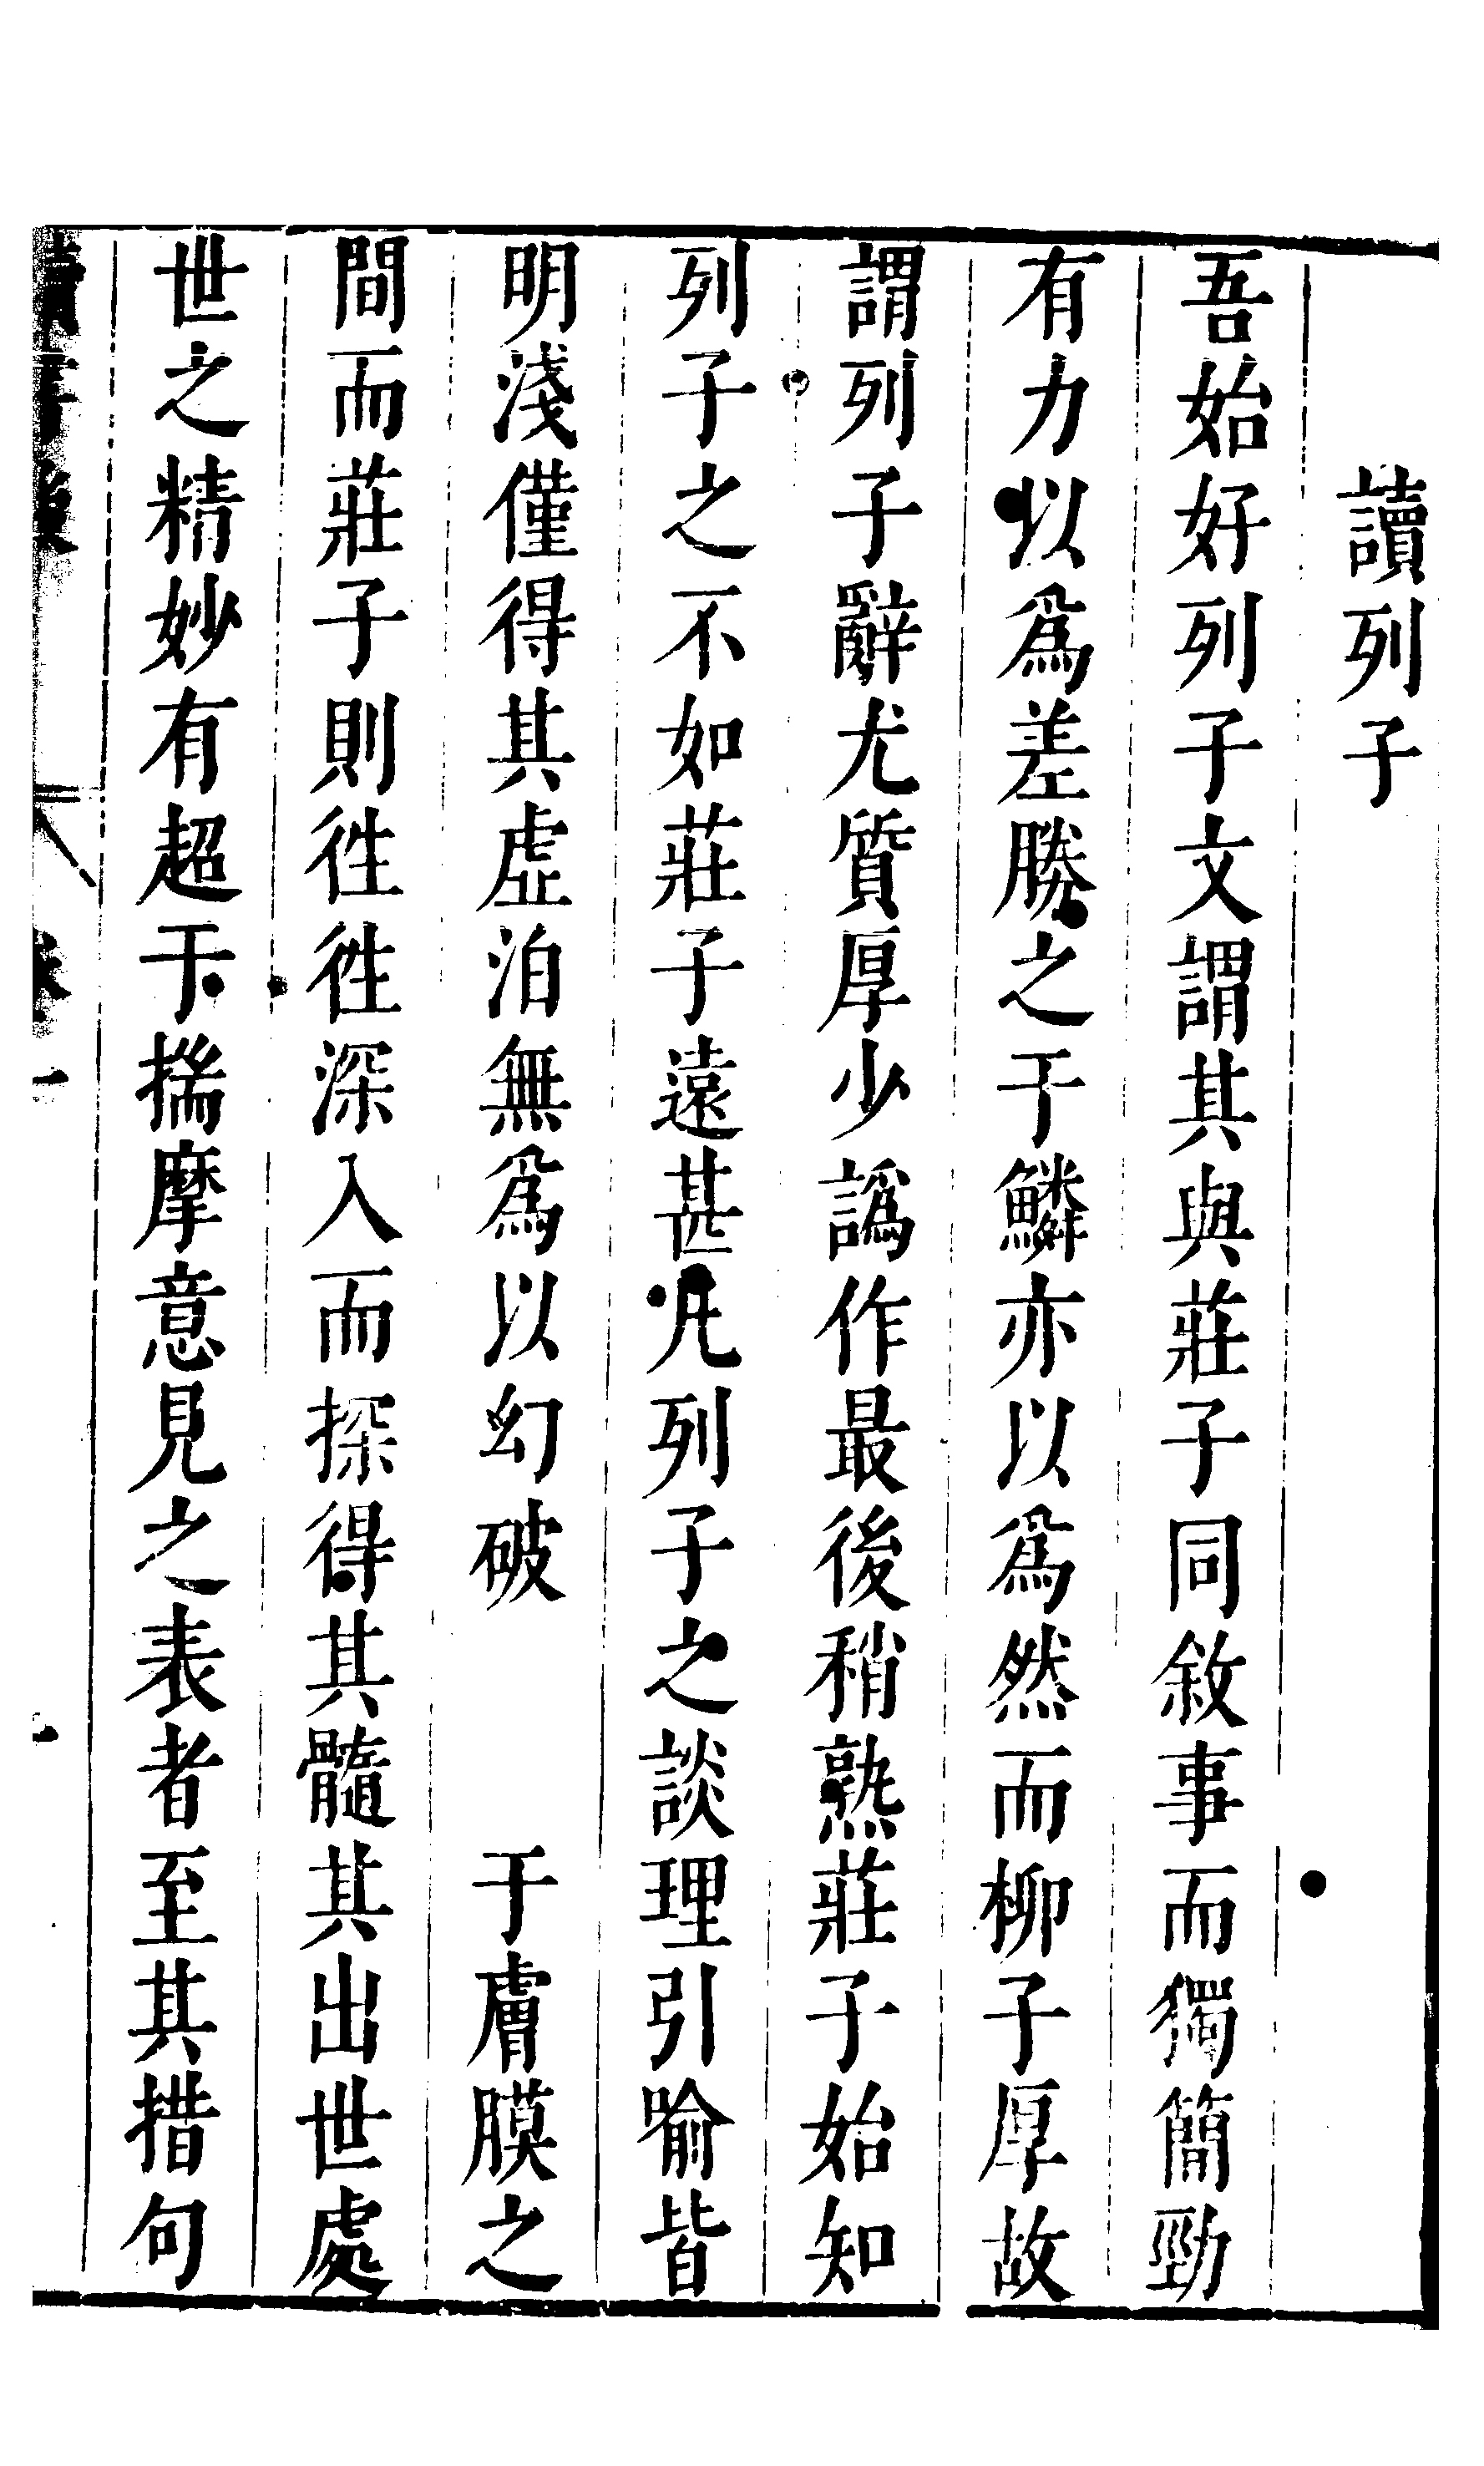 讀列子
吾始好列子文謂其與莊子同敘事而獨簡勁
有力以爲差勝之于鱗亦以爲然而柳子厚故
謂列子辭尤質厚少譌作最後稍熟莊子始知
列子之不如莊子遠甚凡列子之談理引喻皆
明淺僅得其虛泊無爲以幻破　　于膚膜之
間而莊子則徃徃深入而探得其髓其出世處
世之精妙有超于揣摩意見之表者至其措句